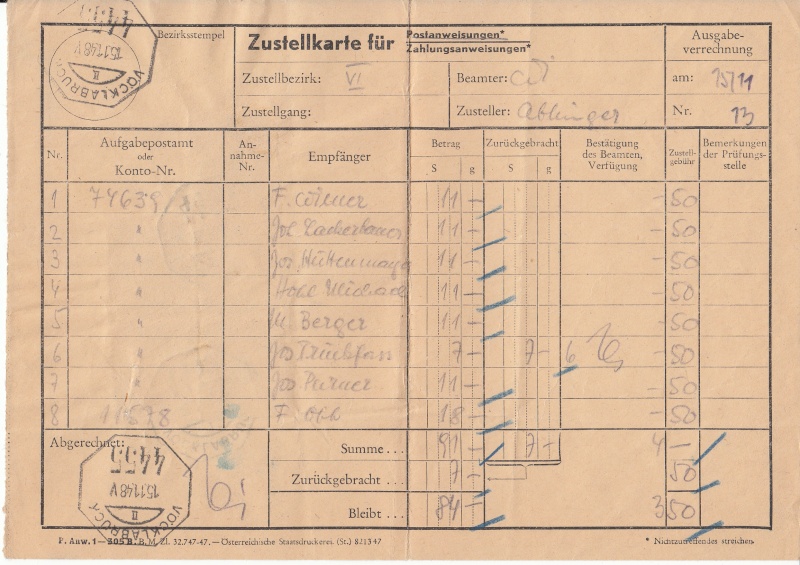 Bezirksstempel
4455
15.11.48 V
II
VÖCKLABRUCK
Zustellkarte für Postanweisungen*
Zahlungsanweisungen*
Ausgabe-
verrechnung
Zustellbezirk: VI
Beamter:
am: 15/11
Zustellgang:
Zusteller: Ablinger
Nr. 13
Nr.
Aufgabepostamt
oder
Konto-Nr.
An-
nahme-
Nr.
Empfänger
Betrag
S g
Zurückgebracht
S g
Bestätigung
des Beamten,
Verfügung
Zustell-
gebühr
Bemerkungen
der Prüfungs-
stelle
1 74639 F. 11 — — 50
2 " Jos. 11 — — 50
3 " Jos. 11 — — 50
4 " 11 — — 50
5 " M. Berger 11 — — 50
6 " Jos 7 — 7 — 6 — 50
7 " Jos 11 — — 50
8 F. 18 — — 50
Abgerechnet:
Summe . . . 91 — 7 — 4 —
Zurückgebracht . . . 7 — 50
Bleibt . . . 84 — 3 50
4455
15.11.48 V
II
VÖCKLABRUCK
P. Anw. 1—305 B. B. M. Zl. 32.747-47. — Österreichische Staatsdruckerei. (St.) 8213 47
* Nichtzutreffendes streichen.